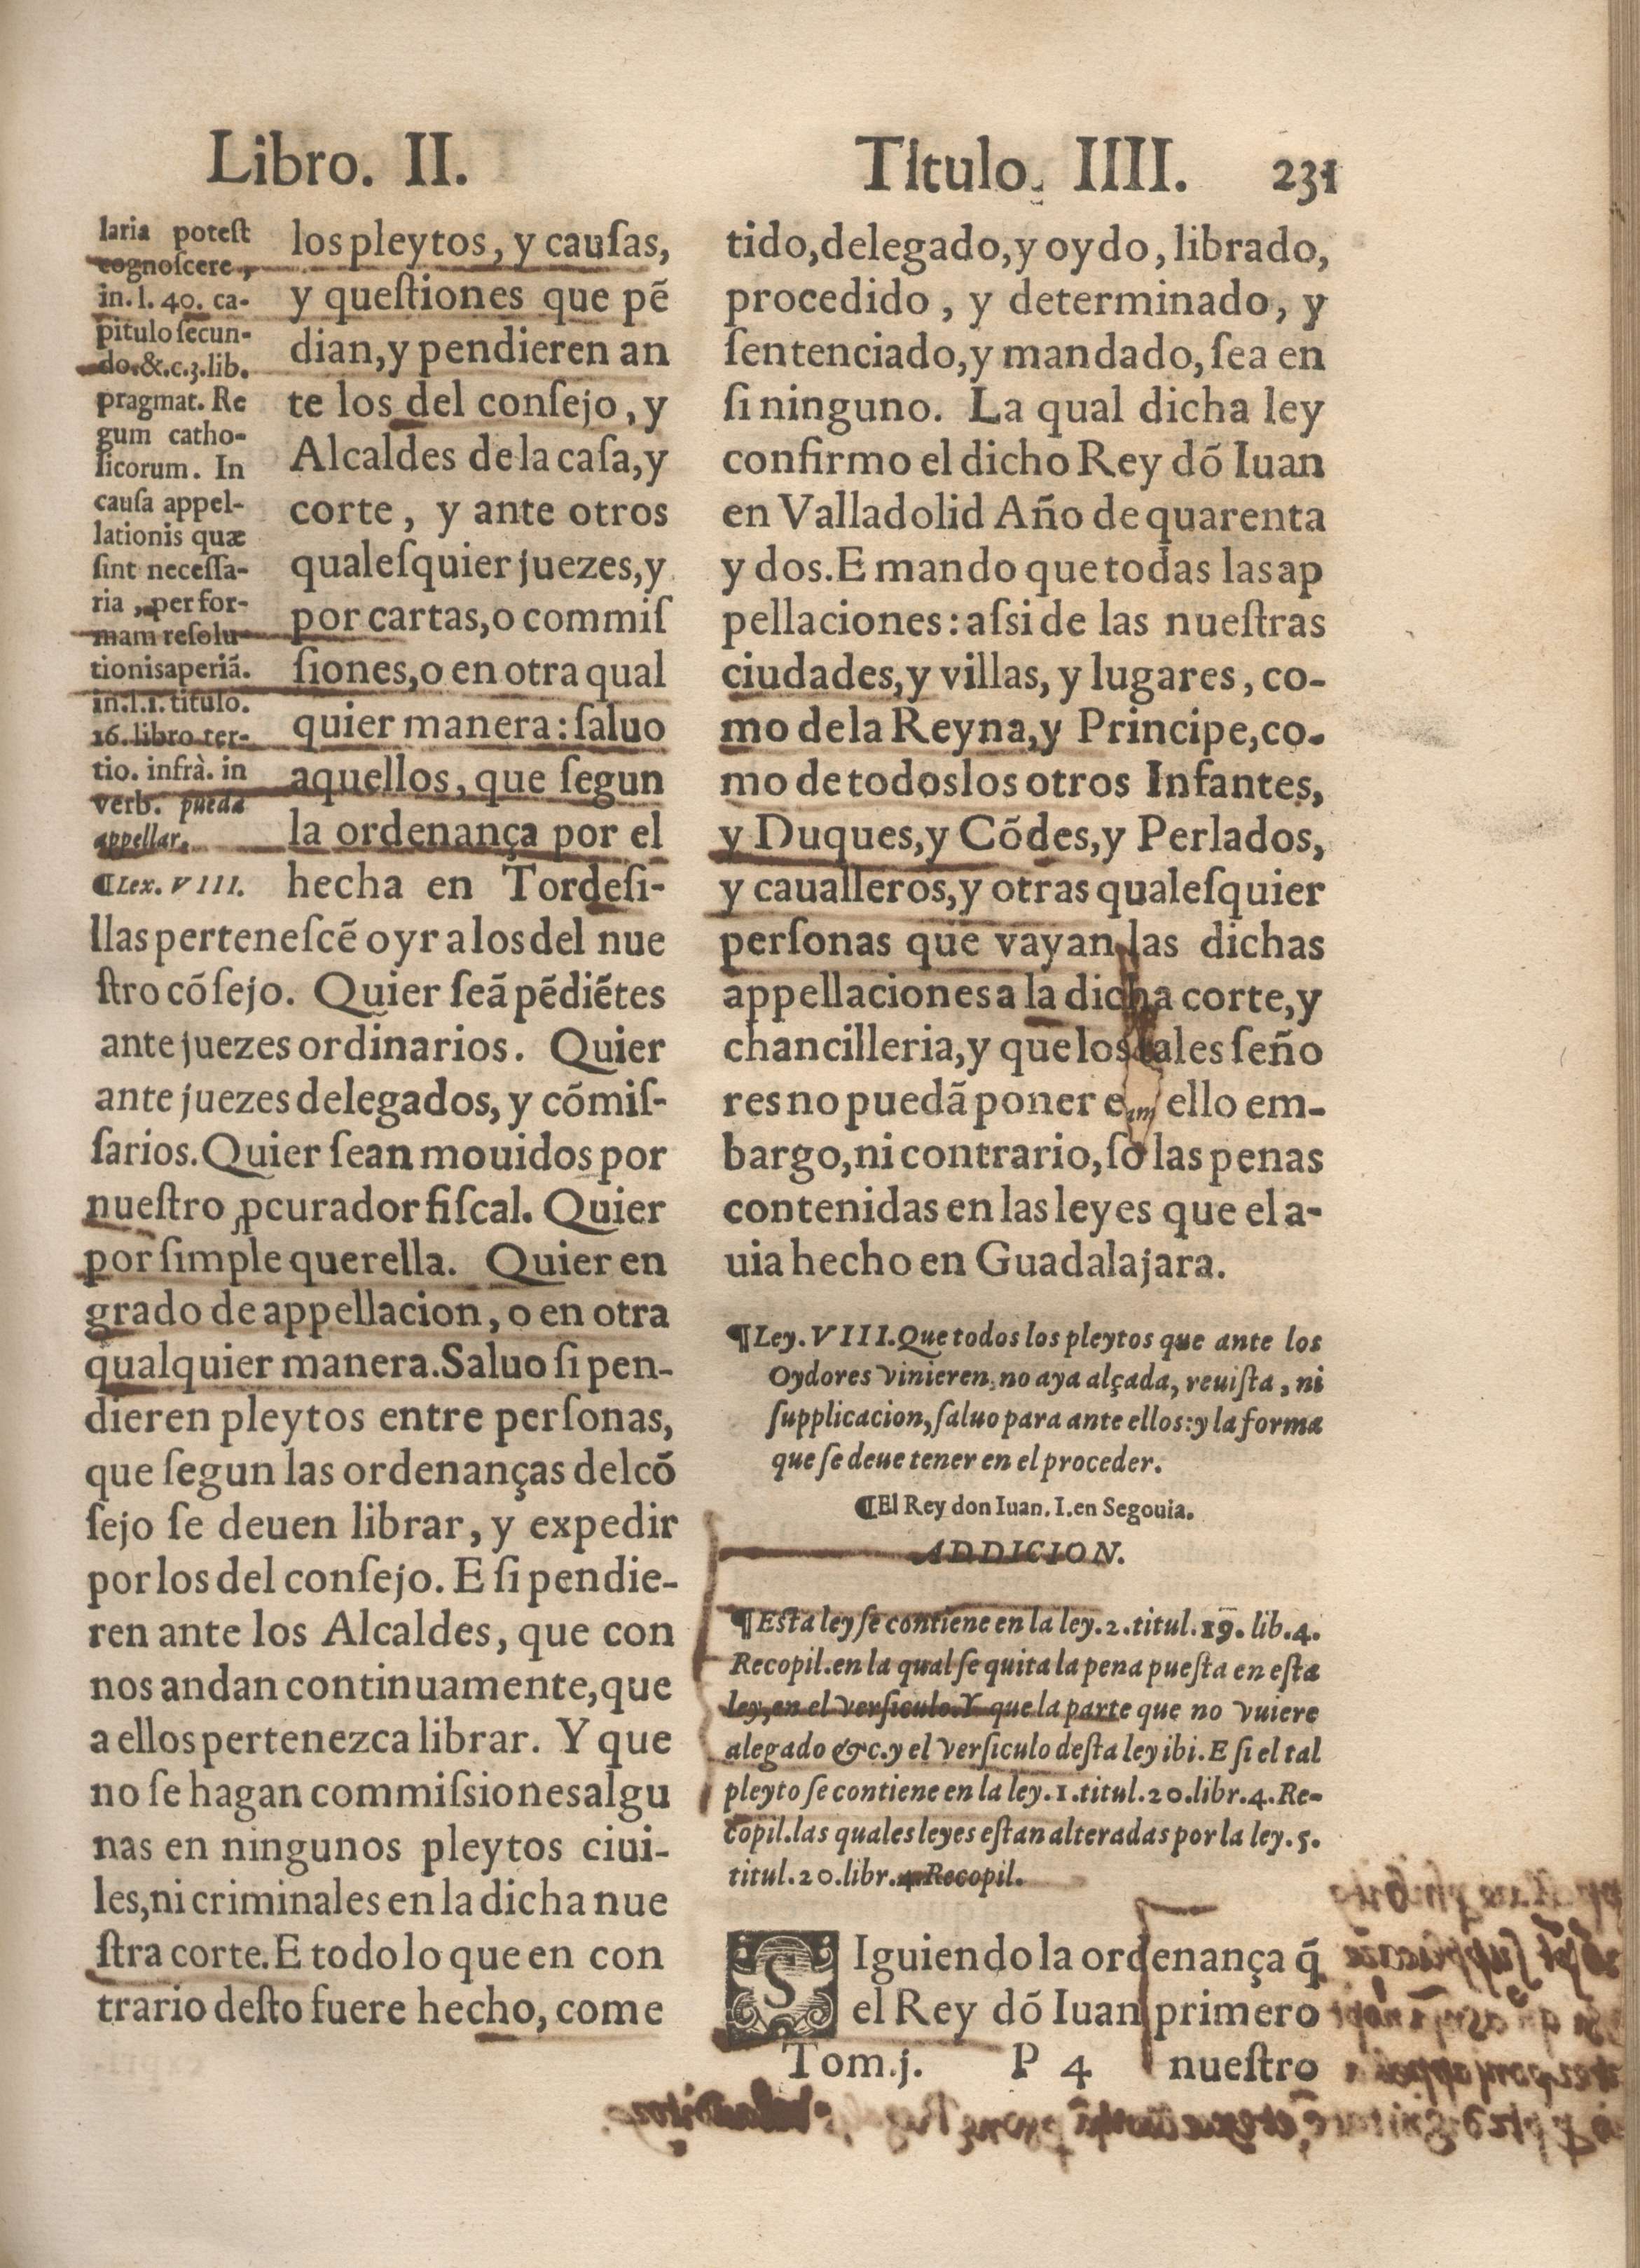 Libro. II.
Titulo. IIII. 231
laria potest
cognoſcere,
in. l. 40. ca-
pitulo ſecun-
do.&.c.3.lib.
pragmat. Re
gum catho-
licorum. In
cauſa appel-
lationis quæ
ſint neceſſa-
ria, per for-
mam reſolu
tionis aperiã.
in.l.1.titulo.
16. libro ter-
tio. infrà. in
verb. pueda
appellar.
¶Lex. VIII.
los pleytos, y cauſas,
y queſtiones que pẽ
dian, y pendieren an
te los del conſejo, y
Alcaldes de la caſa, y
corte, y ante otros
qualeſquier juezes, y
por cartas, o commiſ
ſiones, o en otra qual
quier manera: ſaluo
aquellos, que ſegun
la ordenança por el
hecha en Tordeſi-
llas perteneſcẽ oyr a los del nue
ſtro cõſejo. Quier ſeã pẽdiẽtes
ante juezes ordinarios. Quier
ante juezes delegados, y cõmiſ-
ſarios. Quier ſean mouidos por
nueſtro ꝓcurador fiſcal. Quier
por ſimple querella. Quier en
grado de appellacion, o en otra
qualquier manera. Saluo ſi pen-
dieren pleytos entre perſonas,
que ſegun las ordenanças del cõ
ſejo ſe deuen librar, y expedir
por los del conſejo. E ſi pendie-
ren ante los Alcaldes, que con
nos andan continuamente, que
a ellos pertenezca librar. Y que
no ſe hagan commiſsiones algu
nas en ningunos pleytos ciui-
les, ni criminales en la dicha nue
ſtra corte. E todo lo que en con
trario deſto fuere hecho, come
tido, delegado, y oydo, librado,
procedido, y determinado, y
ſentenciado, y mandado, ſea en
ſi ninguno. La qual dicha ley
confirmo el dicho Rey dõ Iuan
en Valladolid Año de quarenta
y dos. E mando que todas las ap
pellaciones: aſsi de las nueſtras
ciudades, y villas, y lugares, co-
mo de la Reyna, y Principe, co-
mo de todos los otros Infantes,
y Duques, y Cõdes, y Perlados,
y caualleros, y otras qualeſquier
perſonas que vayan las dichas
appellaciones a la dicha corte, y
chancilleria, y que los tales ſeño
res no puedã poner en ello em-
bargo, ni contrario, ſo las penas
contenidas en las leyes que el a-
uia hecho en Guadalajara.
¶Ley. VIII. Que todos los pleytos que ante los
Oydores vinieren, no aya alçada, reuiſta, ni
ſupplicacion, ſaluo para ante ellos: y la forma
que ſe deue tener en el proceder.
¶El Rey don Iuan. I. en Segouia.
ADDICION.
¶Eſta ley ſe contiene en la ley.2.titul.19.lib.4.
Recopil.en la qual ſe quita la pena pueſta en eſta
ley, en el verſiculo. Y que la parte que no vuiere
alegado &c.y el verſiculo deſta ley ibi. E ſi el tal
pleyto ſe contiene en la ley.1.titul.20.libr.4.Re-
copil.las quales leyes eſtan alteradas por la ley.5.
titul.20.libr.4.Recopil.
SIguiendo la ordenança q̃
el Rey dõ Iuan primero
Tom.j. P 4 nueſtro